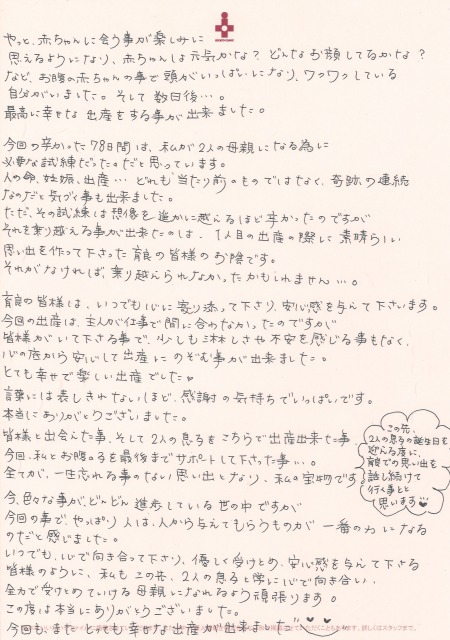 やっと、赤ちゃんに会う事が楽しみに
思えるようになり、赤ちゃんは元気かな？どんなお顔してるかな？
など、お腹の赤ちゃんの事で頭がいっぱいになり、ワクワクしている
自分がいました。そして数日後…。
最高に幸せな出産をする事が出来ました。
今回の辛かった78日間は、私が2人の母親になる為に
必要な試練だったのだと思っています。
人の命、妊娠、出産…どれも当たり前のものではなく、奇跡の連続
なのだと気づく事も出来ました。
ただ、その試練は想像を遥かに越えるほど辛かったのですが
それを乗り越える事が出来たのは、1人目の出産の際に素晴らしい
思い出を作って下さった育良の皆様のお陰です。
それがなければ、乗り越えられなかったかもしれません…。
育良の皆様は、いつでも心に寄り添って下さり、安心感を与えて下さいます。
今回の出産は、主人が仕事で間に合わなかったのですが
皆様がいて下さる事で、少しも淋しさや不安を感じる事もなく、
心の底から安心して出産にのぞむ事が出来ました。
とても幸せで楽しい出産でした♥
言葉には表しきれないほど、感謝の気持ちでいっぱいです。
本当にありがとうございました。
皆様と出会えた事、そして2人の息子をこちらで出産出来た事、
今回、私とお腹の子を最後までサポートして下さった事…。
全てが、一生忘れる事のない思い出となり、私の宝物です。
この先、
2人の息子の誕生日を
迎える度に、
育良での思い出を
話し続けて
行く事と
思います♥
今、色々な事が、どんどん進歩している世の中ですが
今回の事で、やっぱり人は、人から与えてもらうものが一番の力になる
のだと感じました。
いつでも、心で向き合って下さり、優しく受けとめ、安心感を与えて下さる
皆様のように、私もこの先、2人の息子と常に心で向き合い、
全力で受けとめていける母親になれるよう頑張ります。
この度は本当にありがとうございました。
今回も、またとっても幸せな出産が出来ました♥♥♥